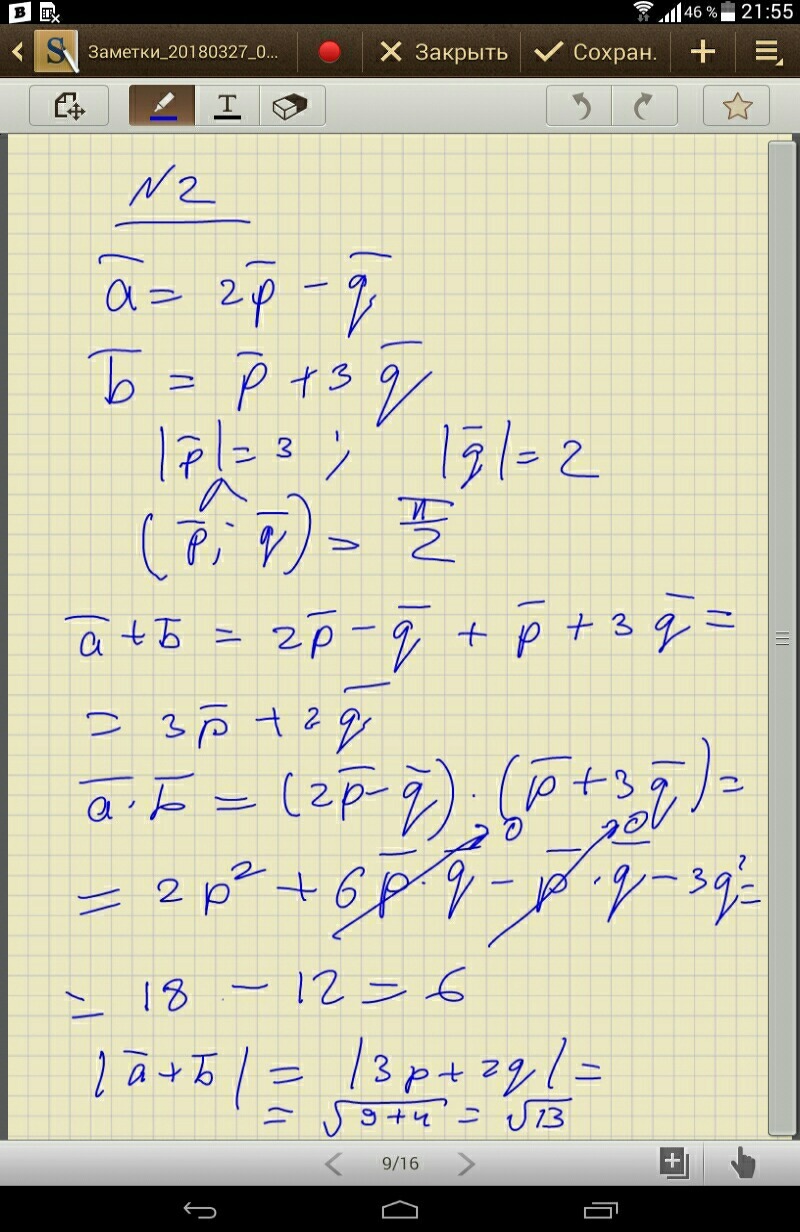 46 % 21:55
Заметки_20180327_0... Закрыть Сохран.
T
N2
a̅ = 2p̅ - q̅
b̅ = p̅ + 3q̅
|p̅| = 3 ; |q̅| = 2
(p̅; ^ q̅) = π/2
a̅ + b̅ = 2p̅ - q̅ + p̅ + 3q̅ =
= 3p̅ + 2q̅
a̅ · b̅ = (2p̅ - q̅) · (p̅ + 3q̅) =
= 2p² + 6p̅ · q̅ → 0 - p̅ · q̅ → 0 - 3q² =
= 18 - 12 = 6
|a̅ + b̅| = |3p + 2q| =
= √9+4 = √13
9/16